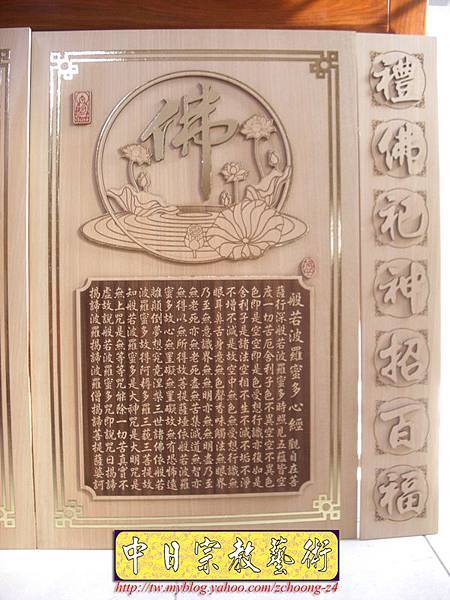 禮佛祀神招百福
佛
般若波羅蜜多心經 觀自在菩
薩行深般若波羅蜜多時照見五蘊皆空
度一切苦厄舍利子色不異空空不異色
色即是空空即是色受想行識亦復如是
舍利子是諸法空相不生不滅不垢不淨
不增不減是故空中無色無受想行識無
眼耳鼻舌身意無色聲香味觸法無眼界
乃至無意識界無無明亦無無明盡乃至
無老死亦無老死盡無苦集滅道無智亦
無得以無所得故菩提薩埵依般若波羅
蜜多故心無罣礙無罣礙故無有恐怖遠
離顛倒夢想究竟涅槃三世諸佛依般若
波羅蜜多故得阿耨多羅三藐三菩提故
知般若波羅蜜多是大神咒是大明咒是
無上咒是無等等咒能除一切苦真實不
虛故說般若波羅蜜多咒即說咒曰揭諦
揭諦波羅揭諦波羅僧揭諦菩提薩婆訶
中日宗教藝術
http://tw.myblog.yahoo.com/zchoong-z4